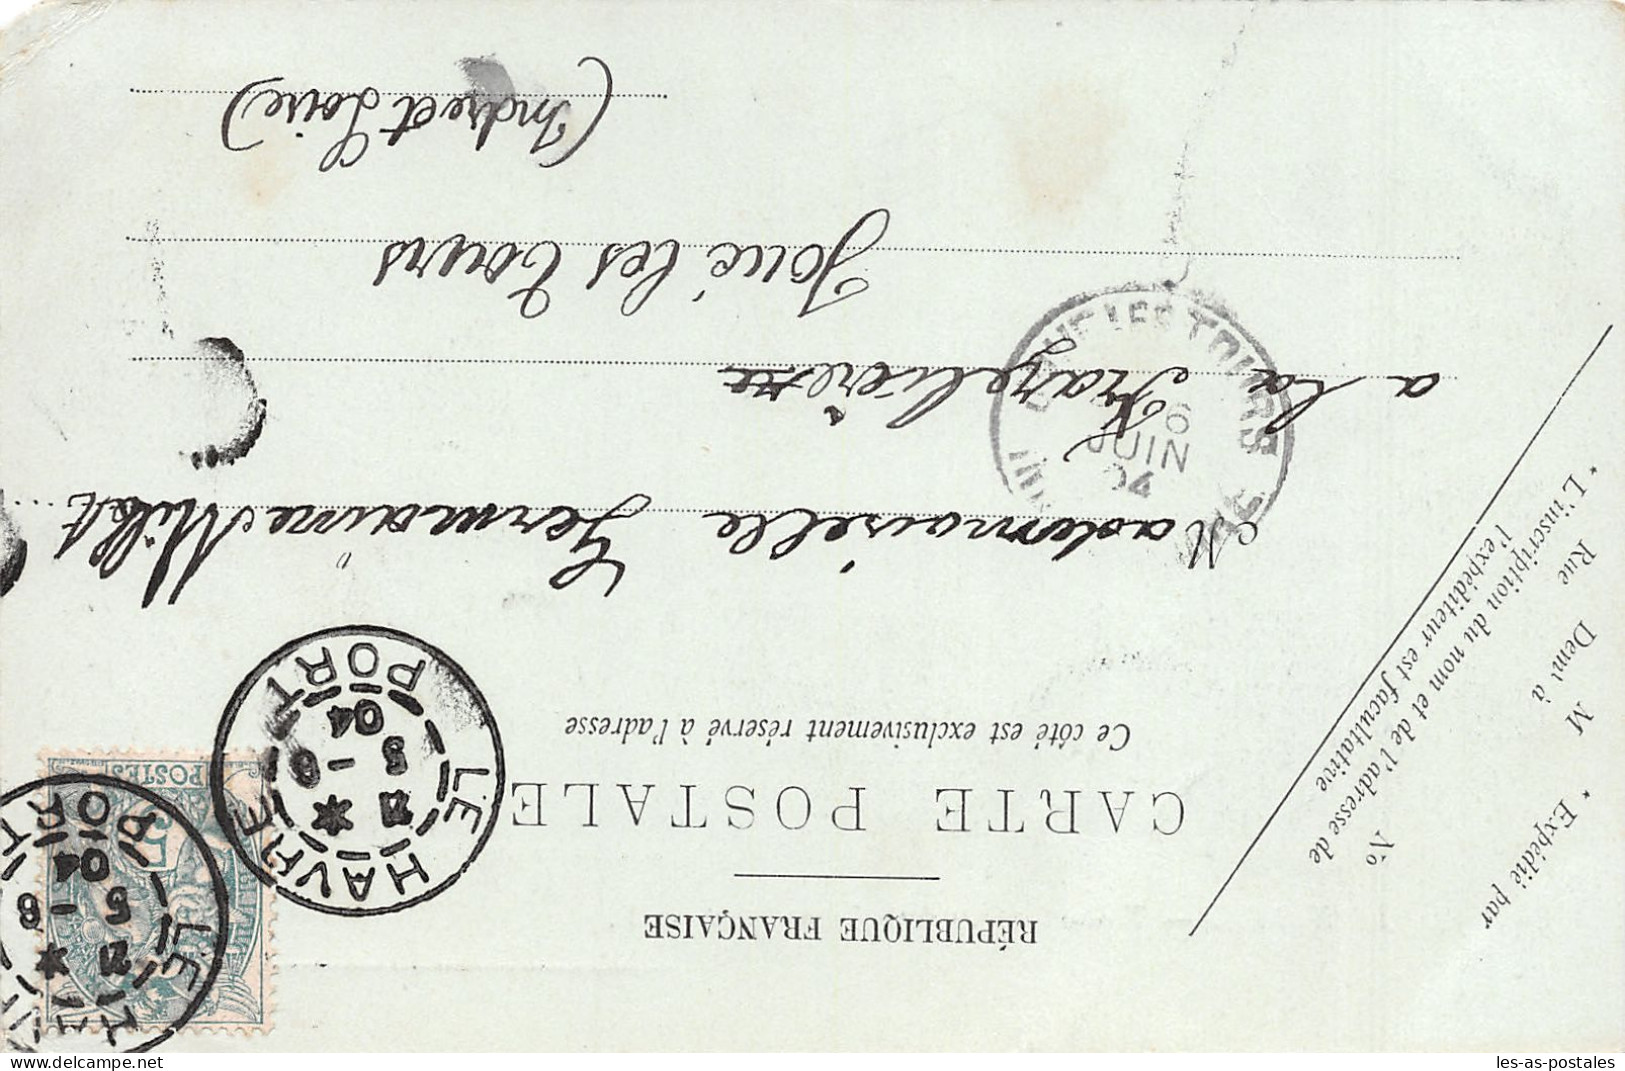 RÉPUBLIQUE FRANÇAISE
CARTE POSTALE
Ce côté est exclusivement réservé à l'adresse
* Expédié par
M
N°
Rue
Dem^t à
* L'inscription du nom et de l'adresse de
l'expéditeur est facultative
POSTES
5
LE HAVRE
21 * 5 - 6
04
PORT
LE HAVRE
21 * 5 - 6
04
PORT
Mademoiselle Germaine Millet
a la
Joué les Tours
(Indre et Loire)
JOUE LES TOURS
6
JUIN
04
delcampe.net
les-as-postales